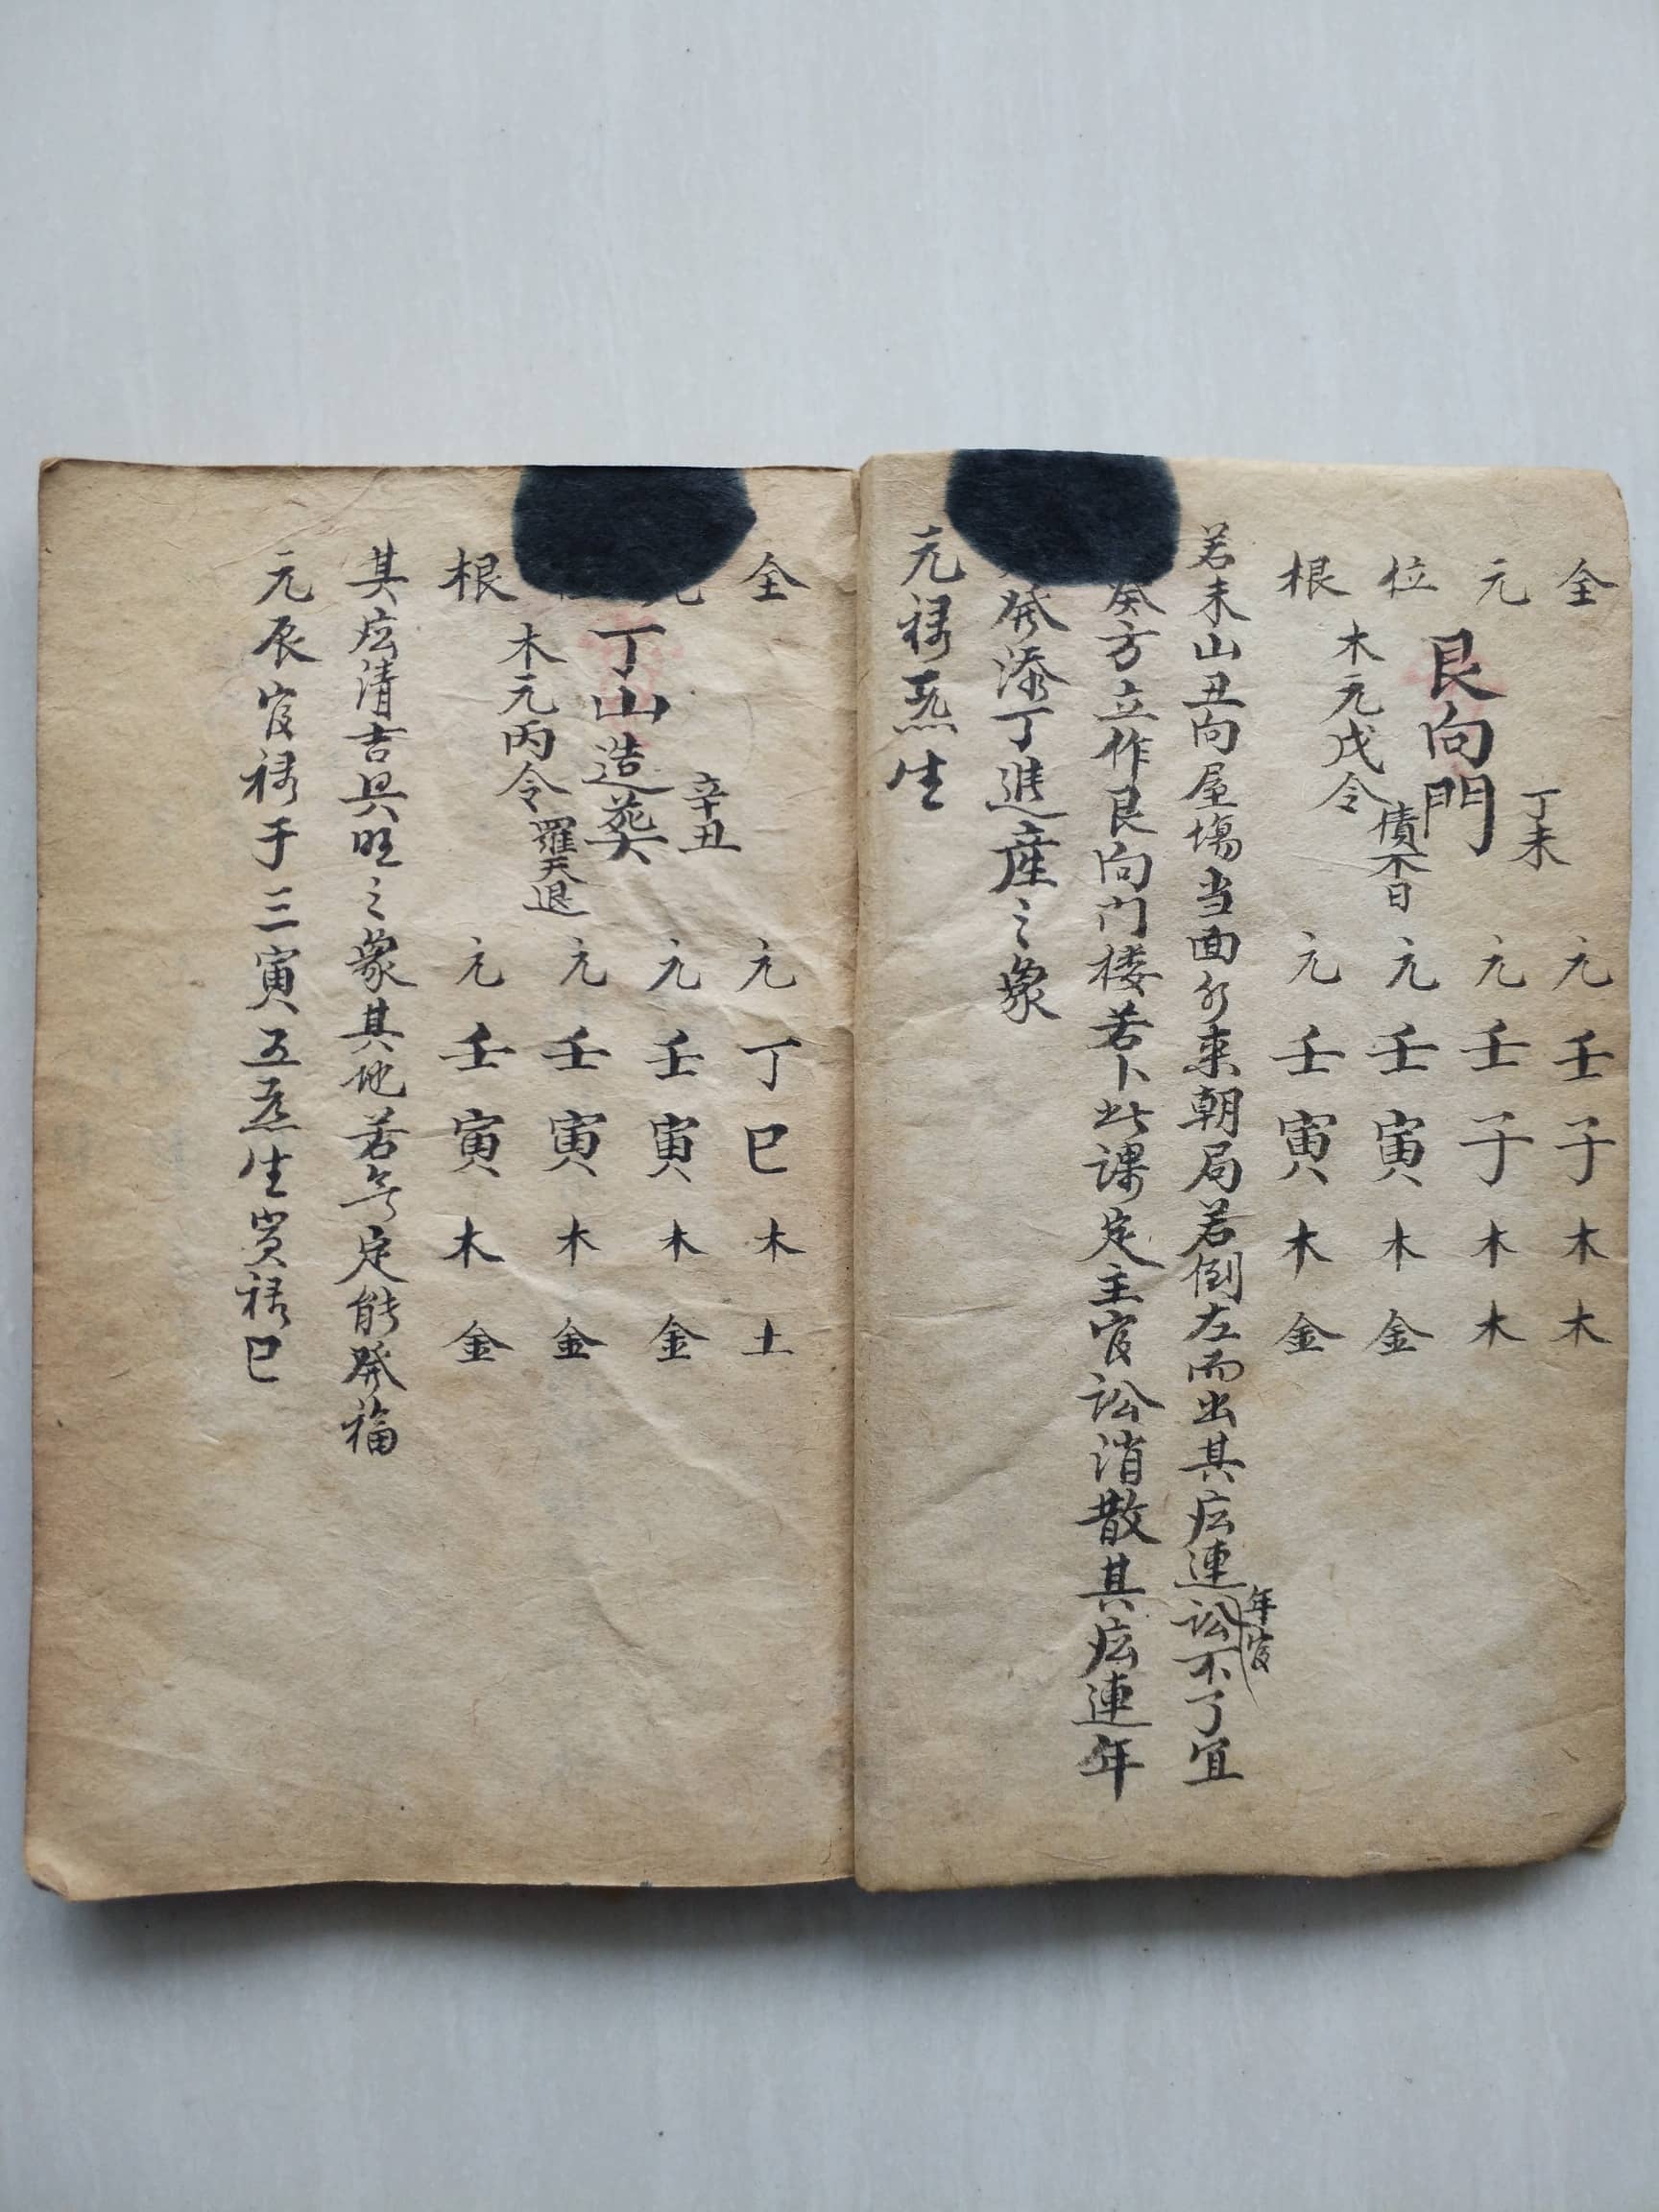 全 元壬子木木
丁未
元 元壬子木木
艮向門
位 元壬寅木金
木元戊令
根 元壬寅木金
若未山丑向屋場当面水来朝局若倒左而出其庅連年官訟不了宜
癸方立作艮向门楼若卜此課定主官訟消散其庅連年
発添丁進産之象
元禄炁生
全 元丁巳木土
辛丑
元 元壬寅木金
丁山造葬
元壬寅木金
木元丙令 羅天退
根 元壬寅木金
其庅清吉興旺之象其地若亏定能發福
元辰官禄于三寅五炁生貴禄巳